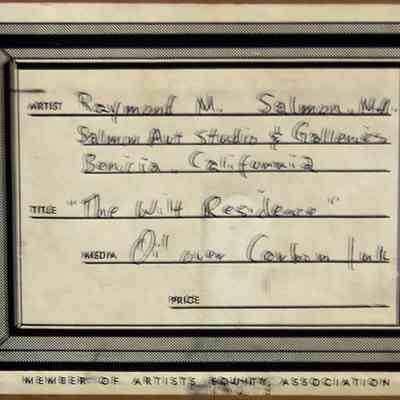 ARTIST Raymond M. Salmon, M.A.
Salmon Art Studio & Galleries
Benicia, California
TITLE "The Wilt Residence"
MEDIA Oil over Carbon Ink
PRICE
MEMBER OF ARTISTS EQUITY ASSOCIATION